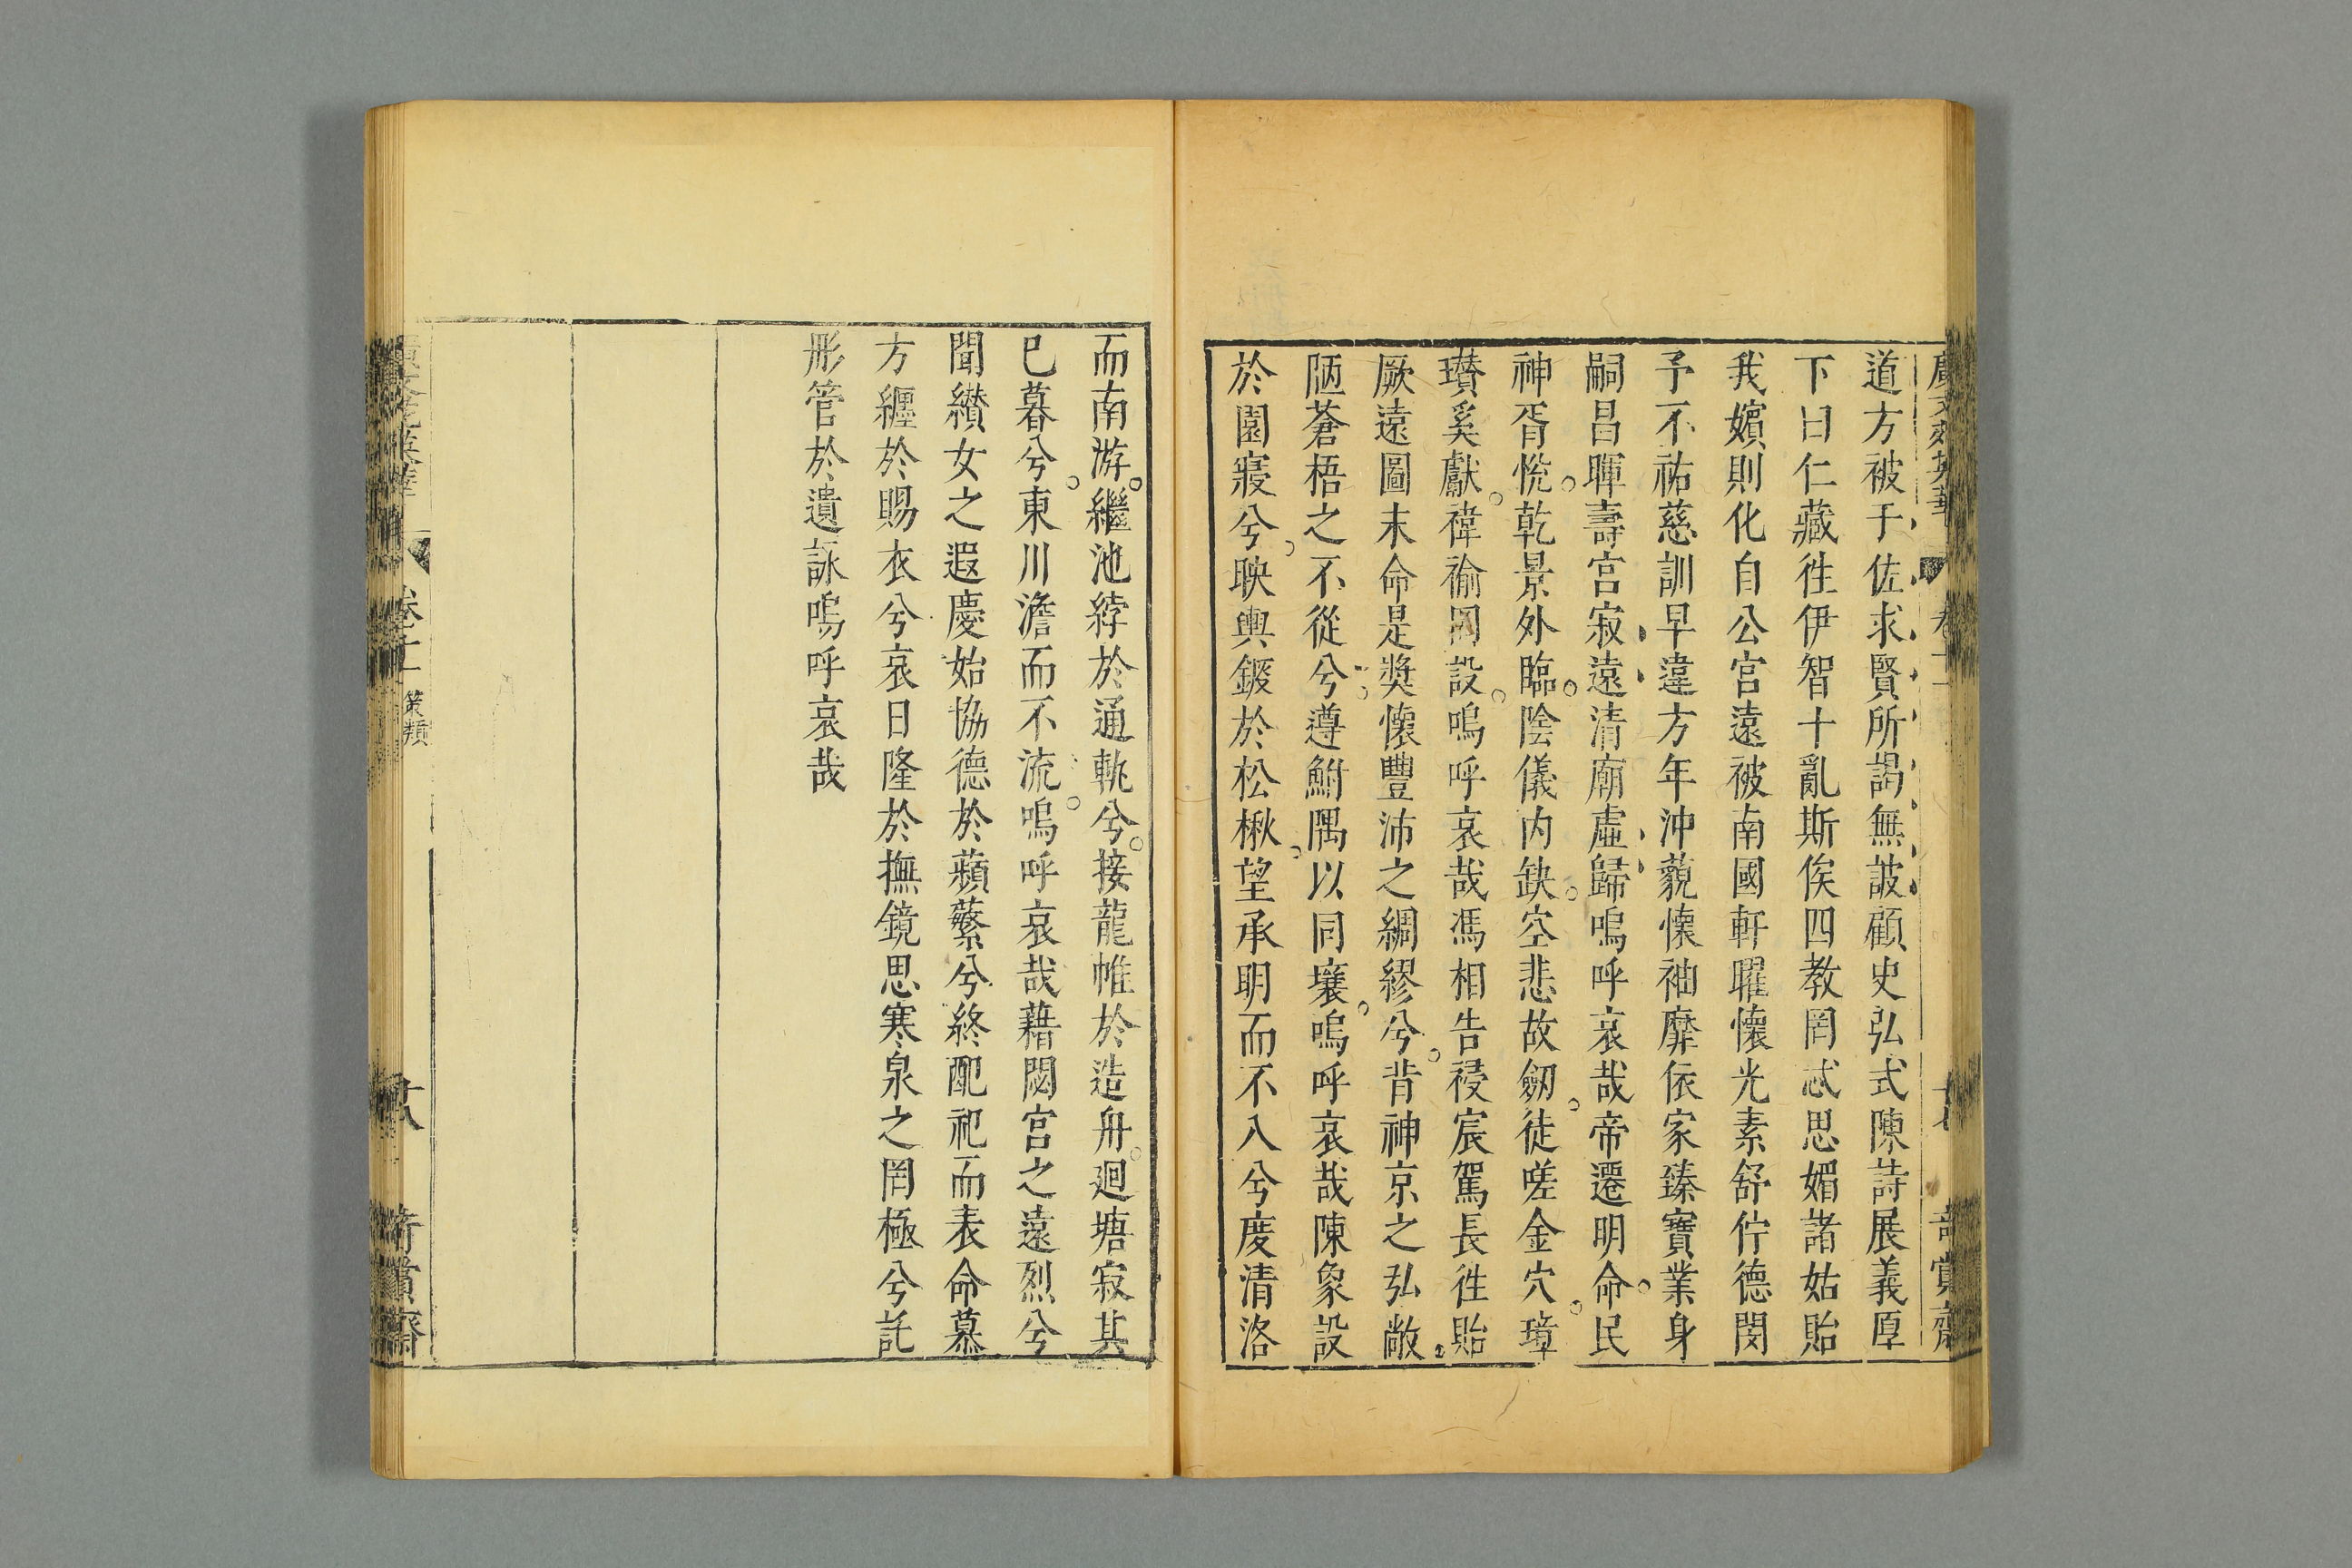 道方被于佐求賢所謁無詖顧史弘式陳詩展義厚
下曰仁藏徃伊智十亂斯俟四教罔忒思媚諸姑貽
我嬪則化自公宮遠被南國軒曜懷光素舒佇德閔
予不祐慈訓早違方年沖藐懷袖靡依家臻寶業身
嗣昌暉壽宮寂遠清廟虛歸嗚呼哀哉帝遷明命民
神胥悅乾景外臨陰儀内缺空悲故劒徒嗟金穴璋
瓚奚獻褘褕罔設嗚呼哀哉馮相告祲宸駕長徃貽
厥遠圖末命是奬懷豐沛之綢繆兮背神京之弘敞
陋蒼梧之不從兮遵鮒隅以同壤嗚呼哀哉陳象設
於園寢兮映輿鍐於松楸望承明而不入兮度清洛
而南游繼池綍於通軌兮接龍帷於造舟廻塘寂其
巳暮兮東川澹而不流嗚呼哀哉藉閟宮之遠烈兮
聞纉女之遐慶始協德於蘋蘩兮終配祀而表命慕
方纒於賜衣兮哀日隆於撫鏡思寒泉之罔極兮託
彤管於遺詠嗚呼哀哉
卷十一 策類 廿八 奇賞齋